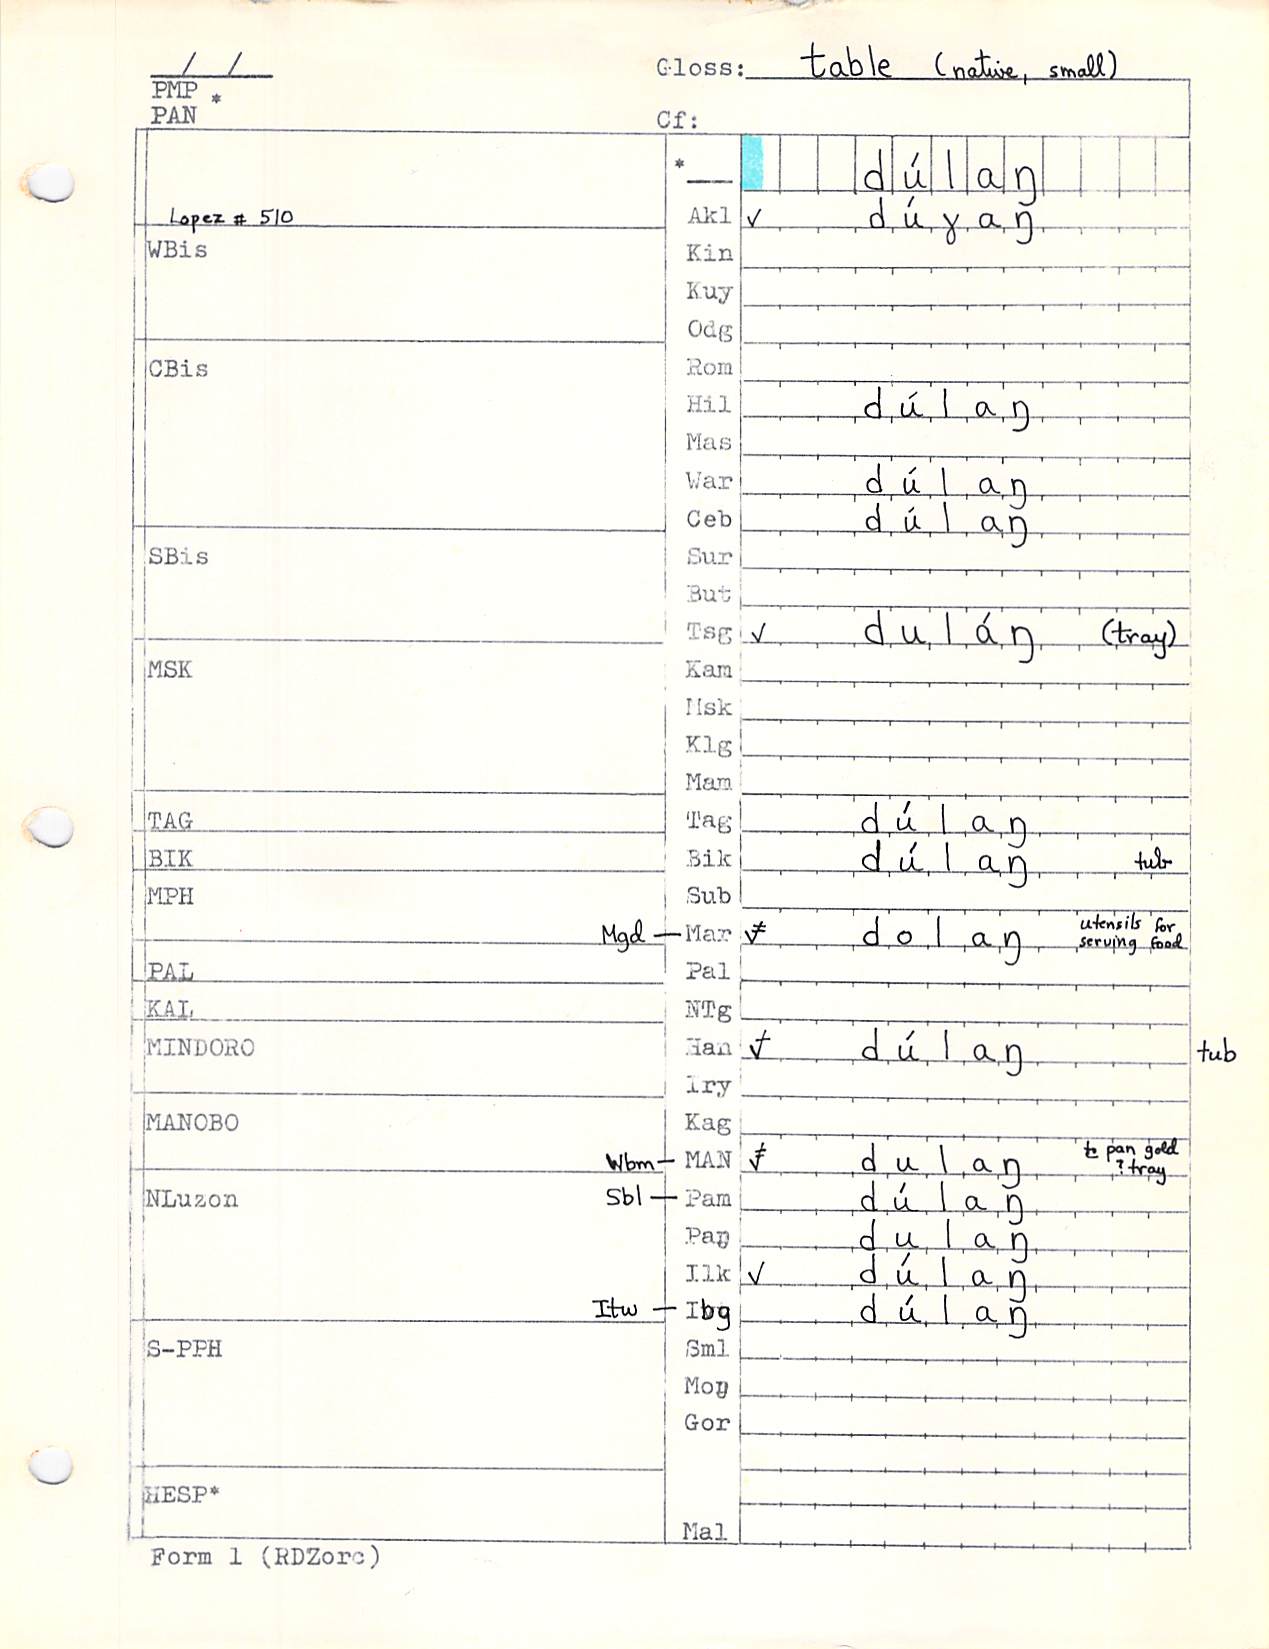 / /
Gloss: table (native, small)
PMP *
PAN
Cf:
* dúlaŋ
Lopez # 510
Akl ✓ dúɣaŋ
WBis
Kin
Kuy
Odg
CBis
Rom
Hil dúlaŋ
Mas
War dúlaŋ
Ceb dúlaŋ
SBis
Sur
But
Tsg ✓ duláŋ (tray)
MSK
Kam
Msk
Klg
Mam
TAG Tag dúlaŋ
BIK Bik dúlaŋ tub
MPH Sub
Mgd — Mar dolaŋ utensils for
serving food
PAL Pal
KAL NTg
MINDORO Han dúlaŋ tub
Iry
MANOBO Kag
Wbm — MAN dulaŋ to pan gold
? tray
NLuzon Sbl — Pam dúlaŋ
Paŋ dulaŋ
Ilk ✓ dúlaŋ
Itw — Ibg dúlaŋ
S-PPH Sml
Moŋ
Gor
HESP*
Mal
Form 1 (RDZorc)